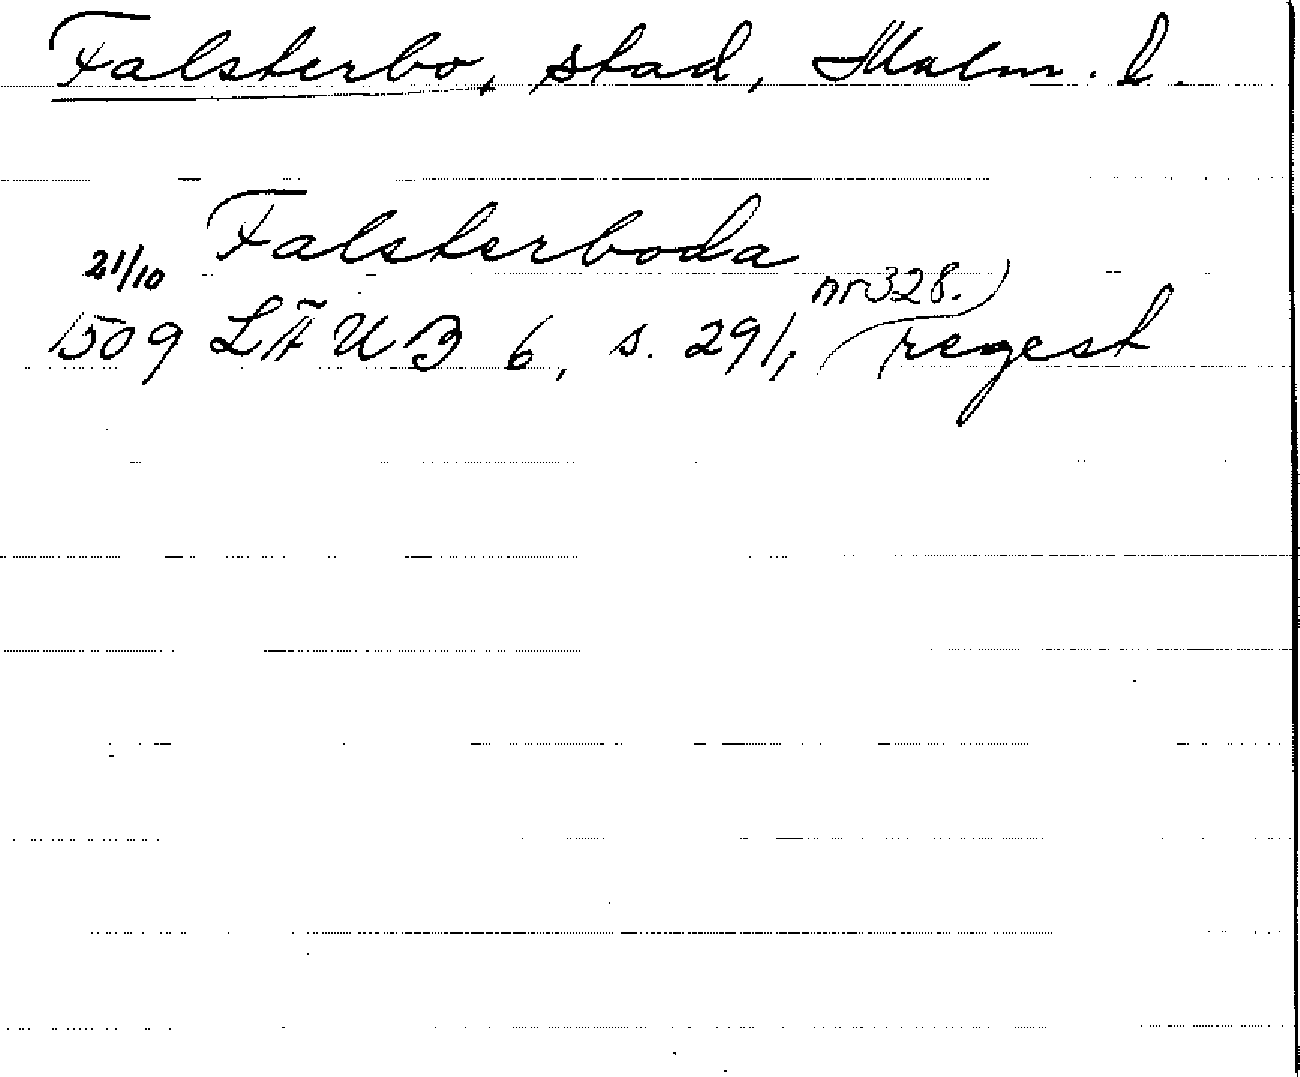 Falsterbo, stad, Malm. l.
Falsterboda
21/10
1509 LÄUB 6, s. 291, nr 328. regest